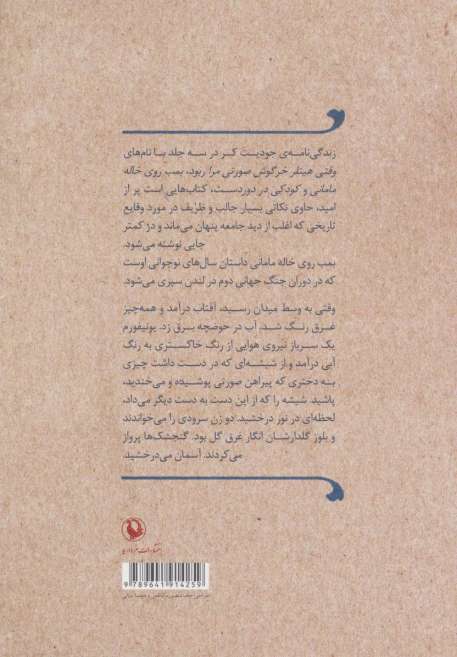 زندگی‌نامه‌ی جودیت کر در سه جلد با نام‌های
وقتی هیتلر خرگوش صورتی مرا ربود، بمب روی خاله
مامانی و کودکی در دوردست، کتاب‌هایی است پر از
امید، حاوی نکاتی بسیار جالب و ظریف در مورد وقایع
تاریخی که اغلب از دید جامعه پنهان می‌ماند و در کمتر
جایی نوشته می‌شود.
بمب روی خاله مامانی داستان سال‌های نوجوانی اوست
که در دوران جنگ جهانی دوم در لندن سپری می‌شود.
وقتی به وسط میدان رسید، آفتاب درآمد و همه‌چیز
غرق رنگ شد. آب در حوضچه برق زد. یونیفورم
یک سرباز نیروی هوایی از رنگ خاکستری به رنگ
آبی درآمد و از شیشه‌ای که در دست داشت چیزی
به دختری که پیراهن صورتی پوشیده و می‌خندید،
پاشید. شیشه را که از این دست به دست دیگر می‌داد،
لحظه‌ای در نور درخشید. دو زن سرودی را می‌خواندند
و بلوز گلدارشان انگار غرق گل بود. گنجشک‌ها پرواز
می‌کردند. آسمان می‌درخشید.
انتشارات مروارید
9 789641 914259